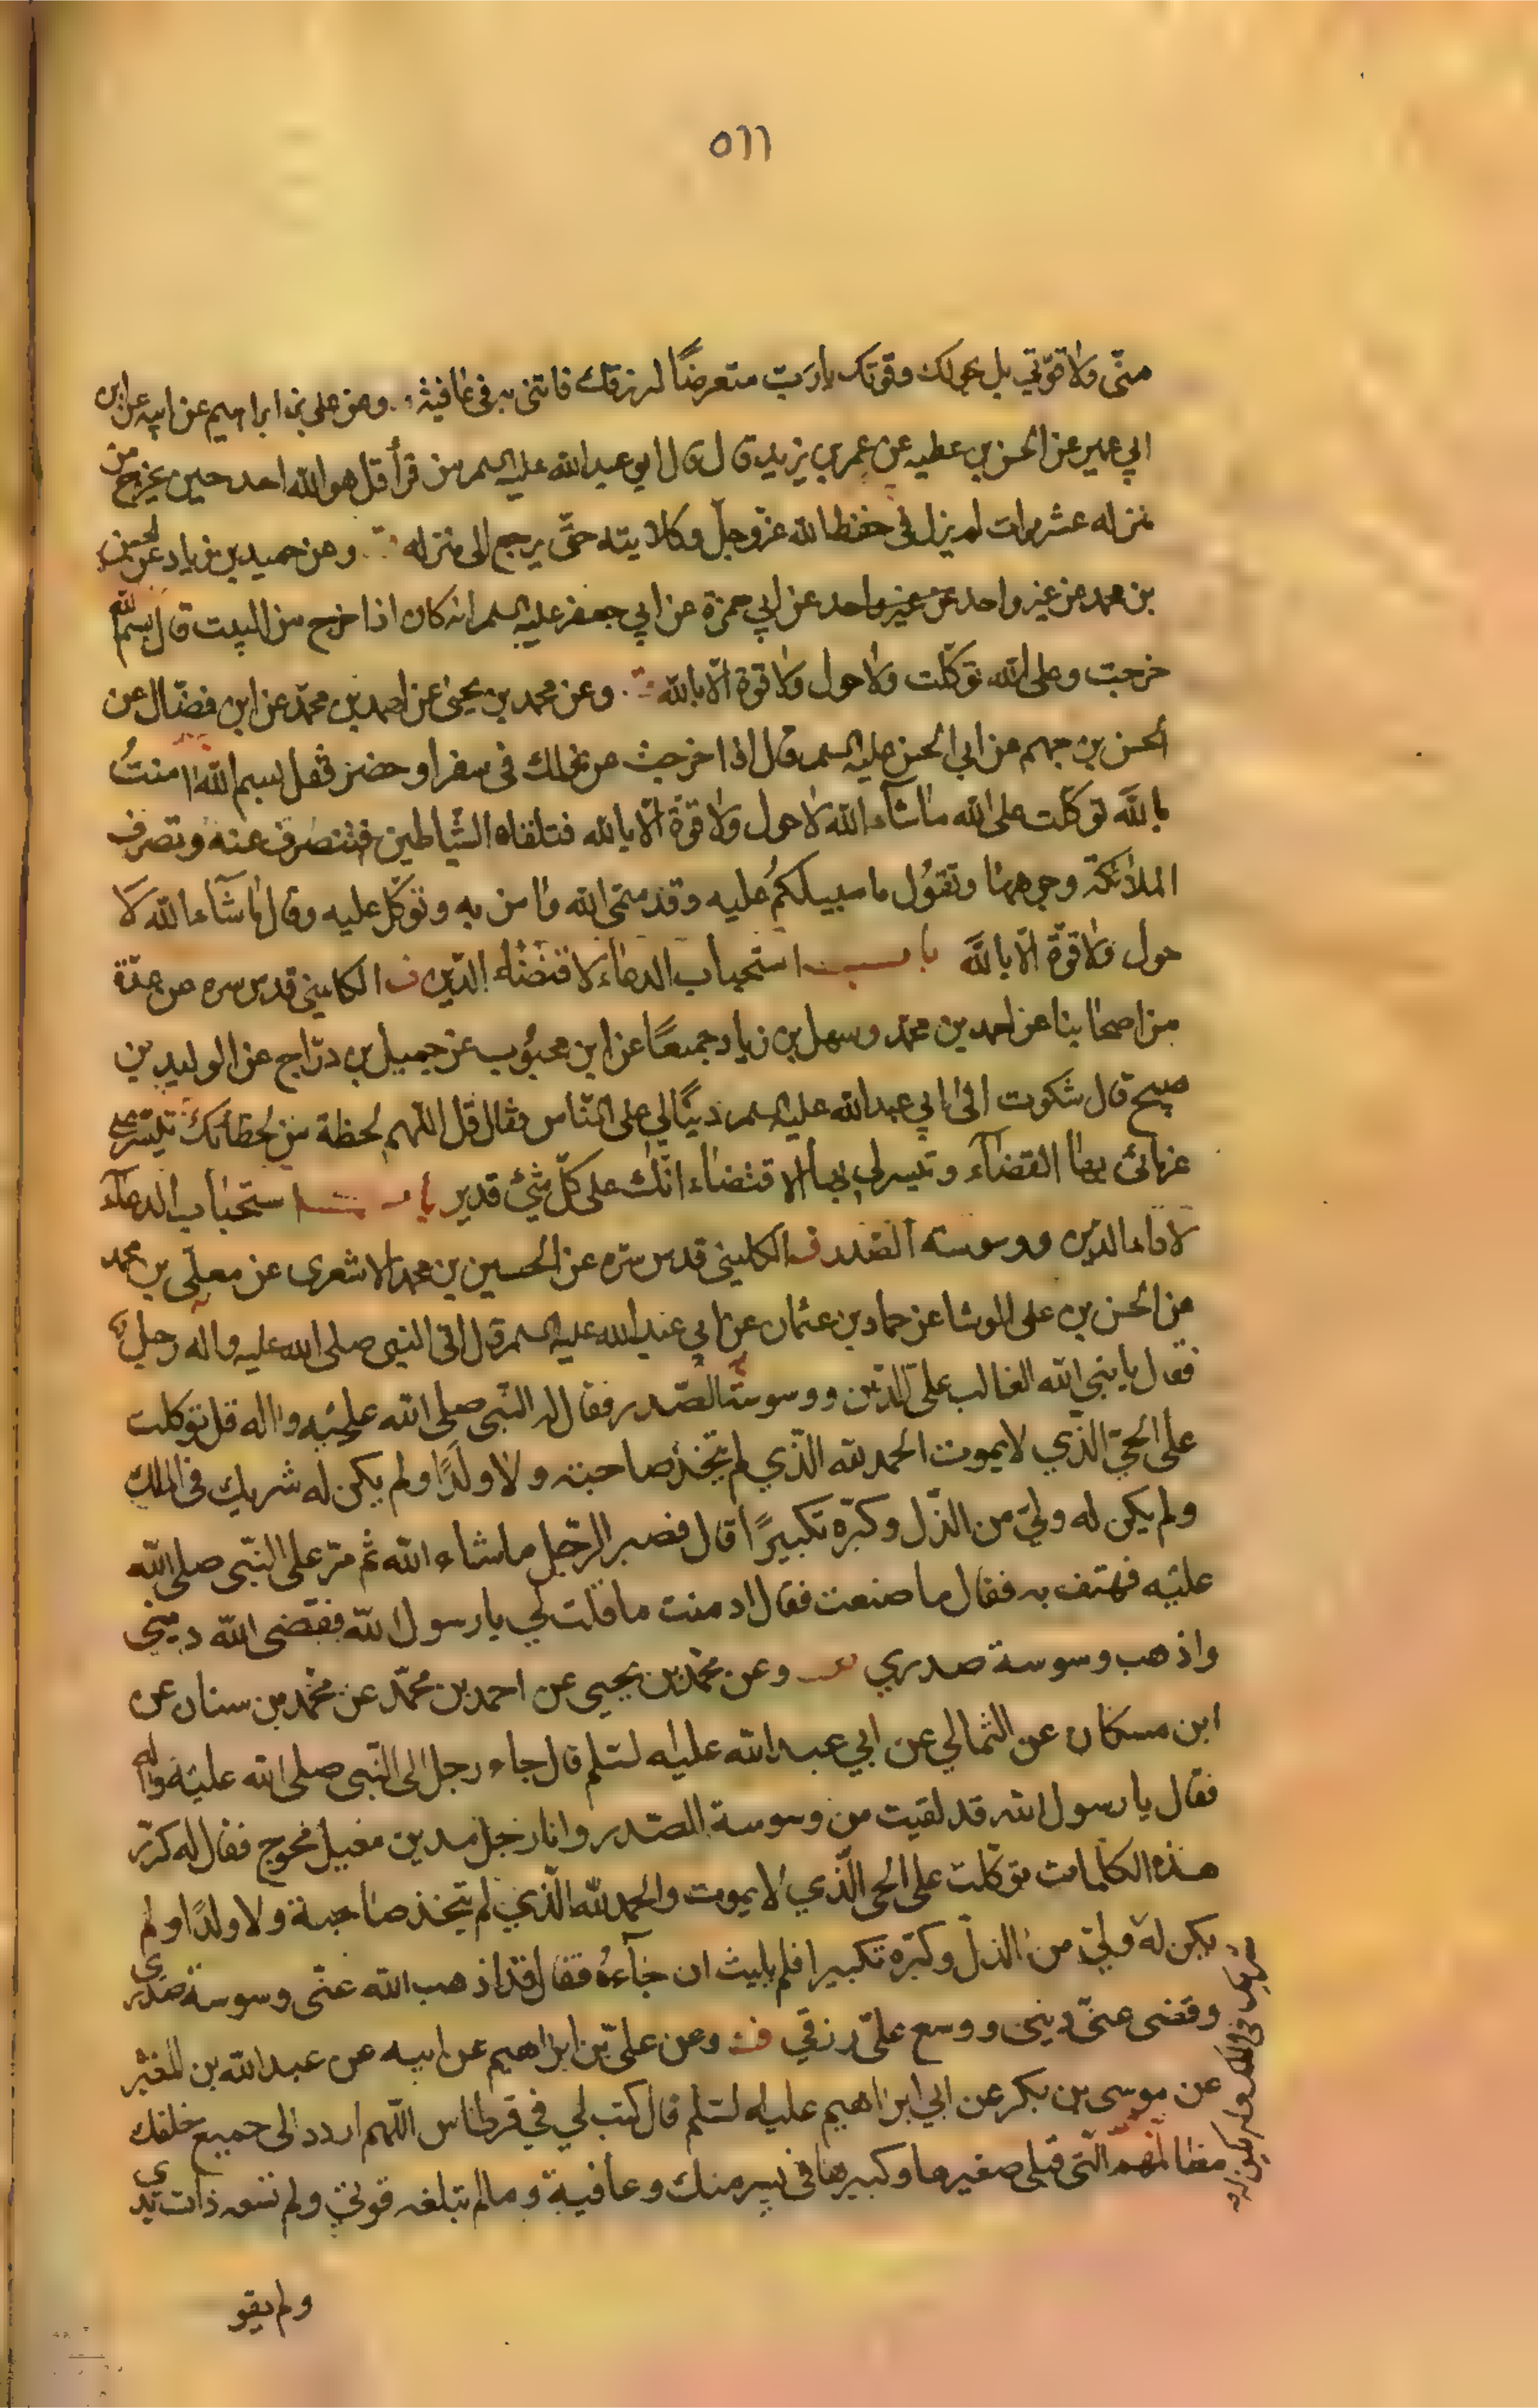 ٥٦٦
منّى ولا قوّتي بل بحولك وقوتك يا ربّ متعرضًا لرزقك فاتنى به فى عافية وعن على بن ابراهيم عن ابيه عن ابن
ابي عمير عن الحسن بن عطيه عن عمر بن يزيد قال قال ابو عبد الله عليه السلم من قرأ قل هو الله احد حين يخرج من
منزله عشر مرات لم يزل فى حفظ الله عزّ وجلّ وكلايته حتّى يرجع الى منزله وعن حميد بن زياد عن الحسن
بن محمد عن غير واحد عن غير واحد عن ابي حمزة عن ابي جعفر عليه السلم انه كان اذا خرج من البيت قال بسم الله
خرجت وعلى الله توكّلت ولا حول ولا قوة الّا بالله وعن محمد بن يحيى عن احمد بن محمّد عن ابن فضّال عن
الحسن بن جهم عن ابي الحسن عليه السلم قال اذا خرجت من منزلك فى سفر او حضر فقل بسم الله امنتُ
بالله توكّلت على الله ما شآء الله لا حول ولا قوّة الّا بالله فتلقاه الشّياطين فتنصرف عنه وتصرف
الملائكة وجوهها وتقول ما سبيلكم عليه وقد سمّى الله وامن به وتوكّل عليه وقال ما شآء الله لا
حول ولا قوّة الّا بالله باب استحباب الدعاء لاقتضاء الدّين ف الكلينى قدس سره عن عدّة
من اصحابنا عن احمد بن محمّد وسهل بن زياد جميعًا عن ابن محبوب عن جميل بن درّاج عن الوليد بن
صبيح قال شكوت الى ابي عبد الله عليه السلم دينًا لي على النّاس فقال قل اللّهم لحظة من لحظاتك تيسّر على
غرمائى بها القضآء وتيسر لي بها الاقتضاء انّك على كلّ شئ قدير باب استحباب الدعآء
لاداء الدين ووسوسة الصّدر ف الكلينى قدس سرّه عن الحسين بن محمد الاشعرى عن معلّى بن محمد
عن الحسن بن على الوشا عن حماد بن عثمان عن ابي عبد الله عليه السلم قال اتى النبى صلى الله عليه واله رجل
فقال يا نبى الله الغالب علىّ الدّين ووسوسة الصّدر فقال له النّبى صلى الله عليه واله قل توكلت
على الحيّ الّذي لا يموت الحمد لله الّذي لم يتّخذ صاحبة ولا ولدًا ولم يكن له شريك فى الملك
ولم يكن له وليّ من الذّل وكبّره تكبيرًا قال فصبر الرّجل ما شاء الله ثم مرّ على النّبى صلى الله
عليه فهتف به فقال ما صنعت فقال ادمنت ما قلت لي يا رسول الله فقضى الله دينى
واذهب وسوسة صدري وعن محمّد بن يحيى عن احمد بن محمّد عن محمّد بن سنان عن
ابن مسكان عن الثمالي عن ابي عبد الله عليه لسّلم قال جاء رجل الى النّبى صلى الله عليه واله
فقال يا رسول الله قد لقيت من وسوسة الصّدر وانا رجل مدين معيل محوج فقال له كرّر
هذه الكلمات توكّلت على الحى الّذي لا يموت والحمد لله الّذي لم يتّخذ صاحبة ولا ولدًا ولم
يكن له وليّ من الذلّ وكبّره تكبيرا فلم يلبث ان جآءه فقال قد اذهب الله عنّى وسوسة صدري
وقضى عنّى دينى ووسع علىّ رزقي ف وعن علىّ بن ابراهيم عن ابيه عن عبد الله بن المغيره
عن موسى بن بكر عن ابي ابراهيم عليه لسّلم قال كتب لي في قرطاس اللّهم اردد الى جميع خلقك
مظالمهم الّتى قبلى صغيرها وكبيرها فى يسر منك وعافية وما لم تبلغه قوتي ولم تسعه ذات يدي
شريك فى الملك ولم يكن له
ولم يقو